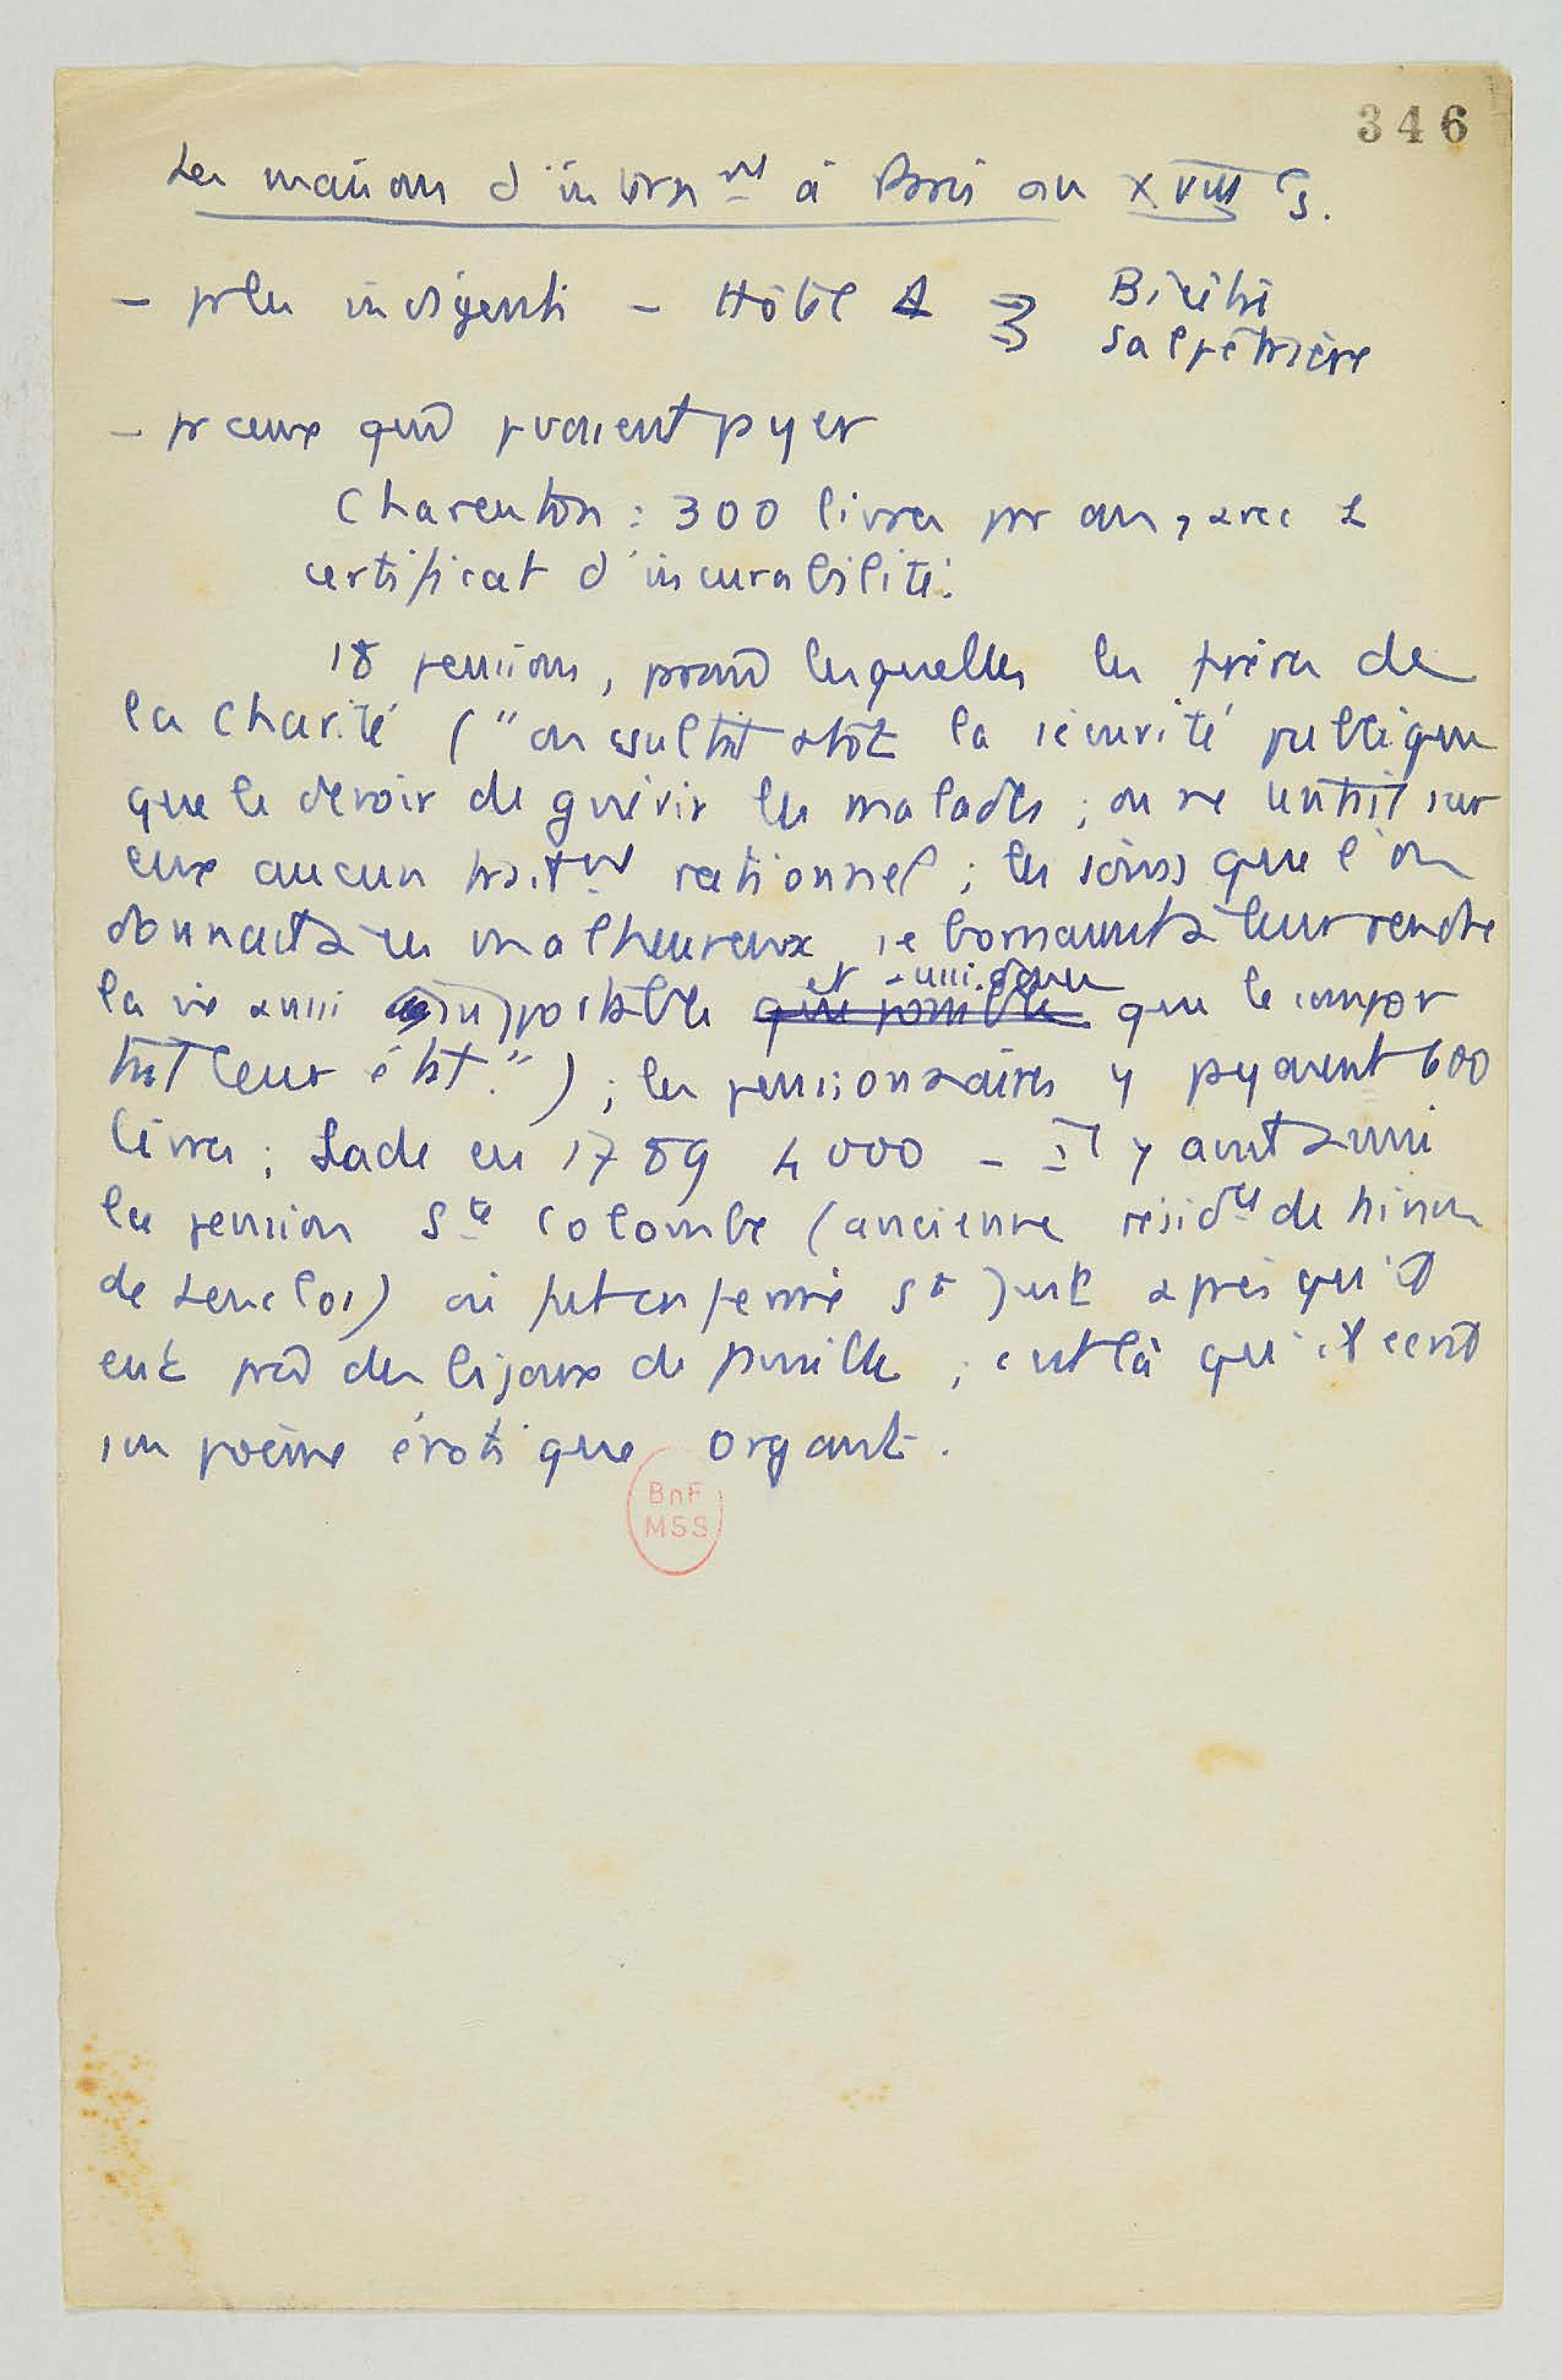 346
Les maisons d'internt à Paris au XVIIIe s.
- pr les indigents - Hôtel D → Bicêtre
Salpêtrière
- pr ceux qui pvaient payer
Charenton : 300 livres par an, avec 1
certificat d'incurabilité.
18 pensions, parmi lesquelles les frères de
la Charité ("on consultait plutôt la sécurité publique
que le devoir de guérir les malades ; on ne tentait sur
eux aucun traitmt rationnel ; les soins que l'on
donnait à ces malheureux se bornaient à leur rendre
la vie aussi supportable que possible et aussi douce que le compor
tait leur état.") ; les pensionnaires y payaient 600
livres ; Sade en 1789 4000 - Il y avait aussi
la pension Ste Colombe (ancienne résidce de Ninon
de Lenclos) où fut enfermé St Just après qu'il
eut pris des bijoux de famille ; c'est là qu'il écrit
son poème érotique Organt.
BnF
MSS